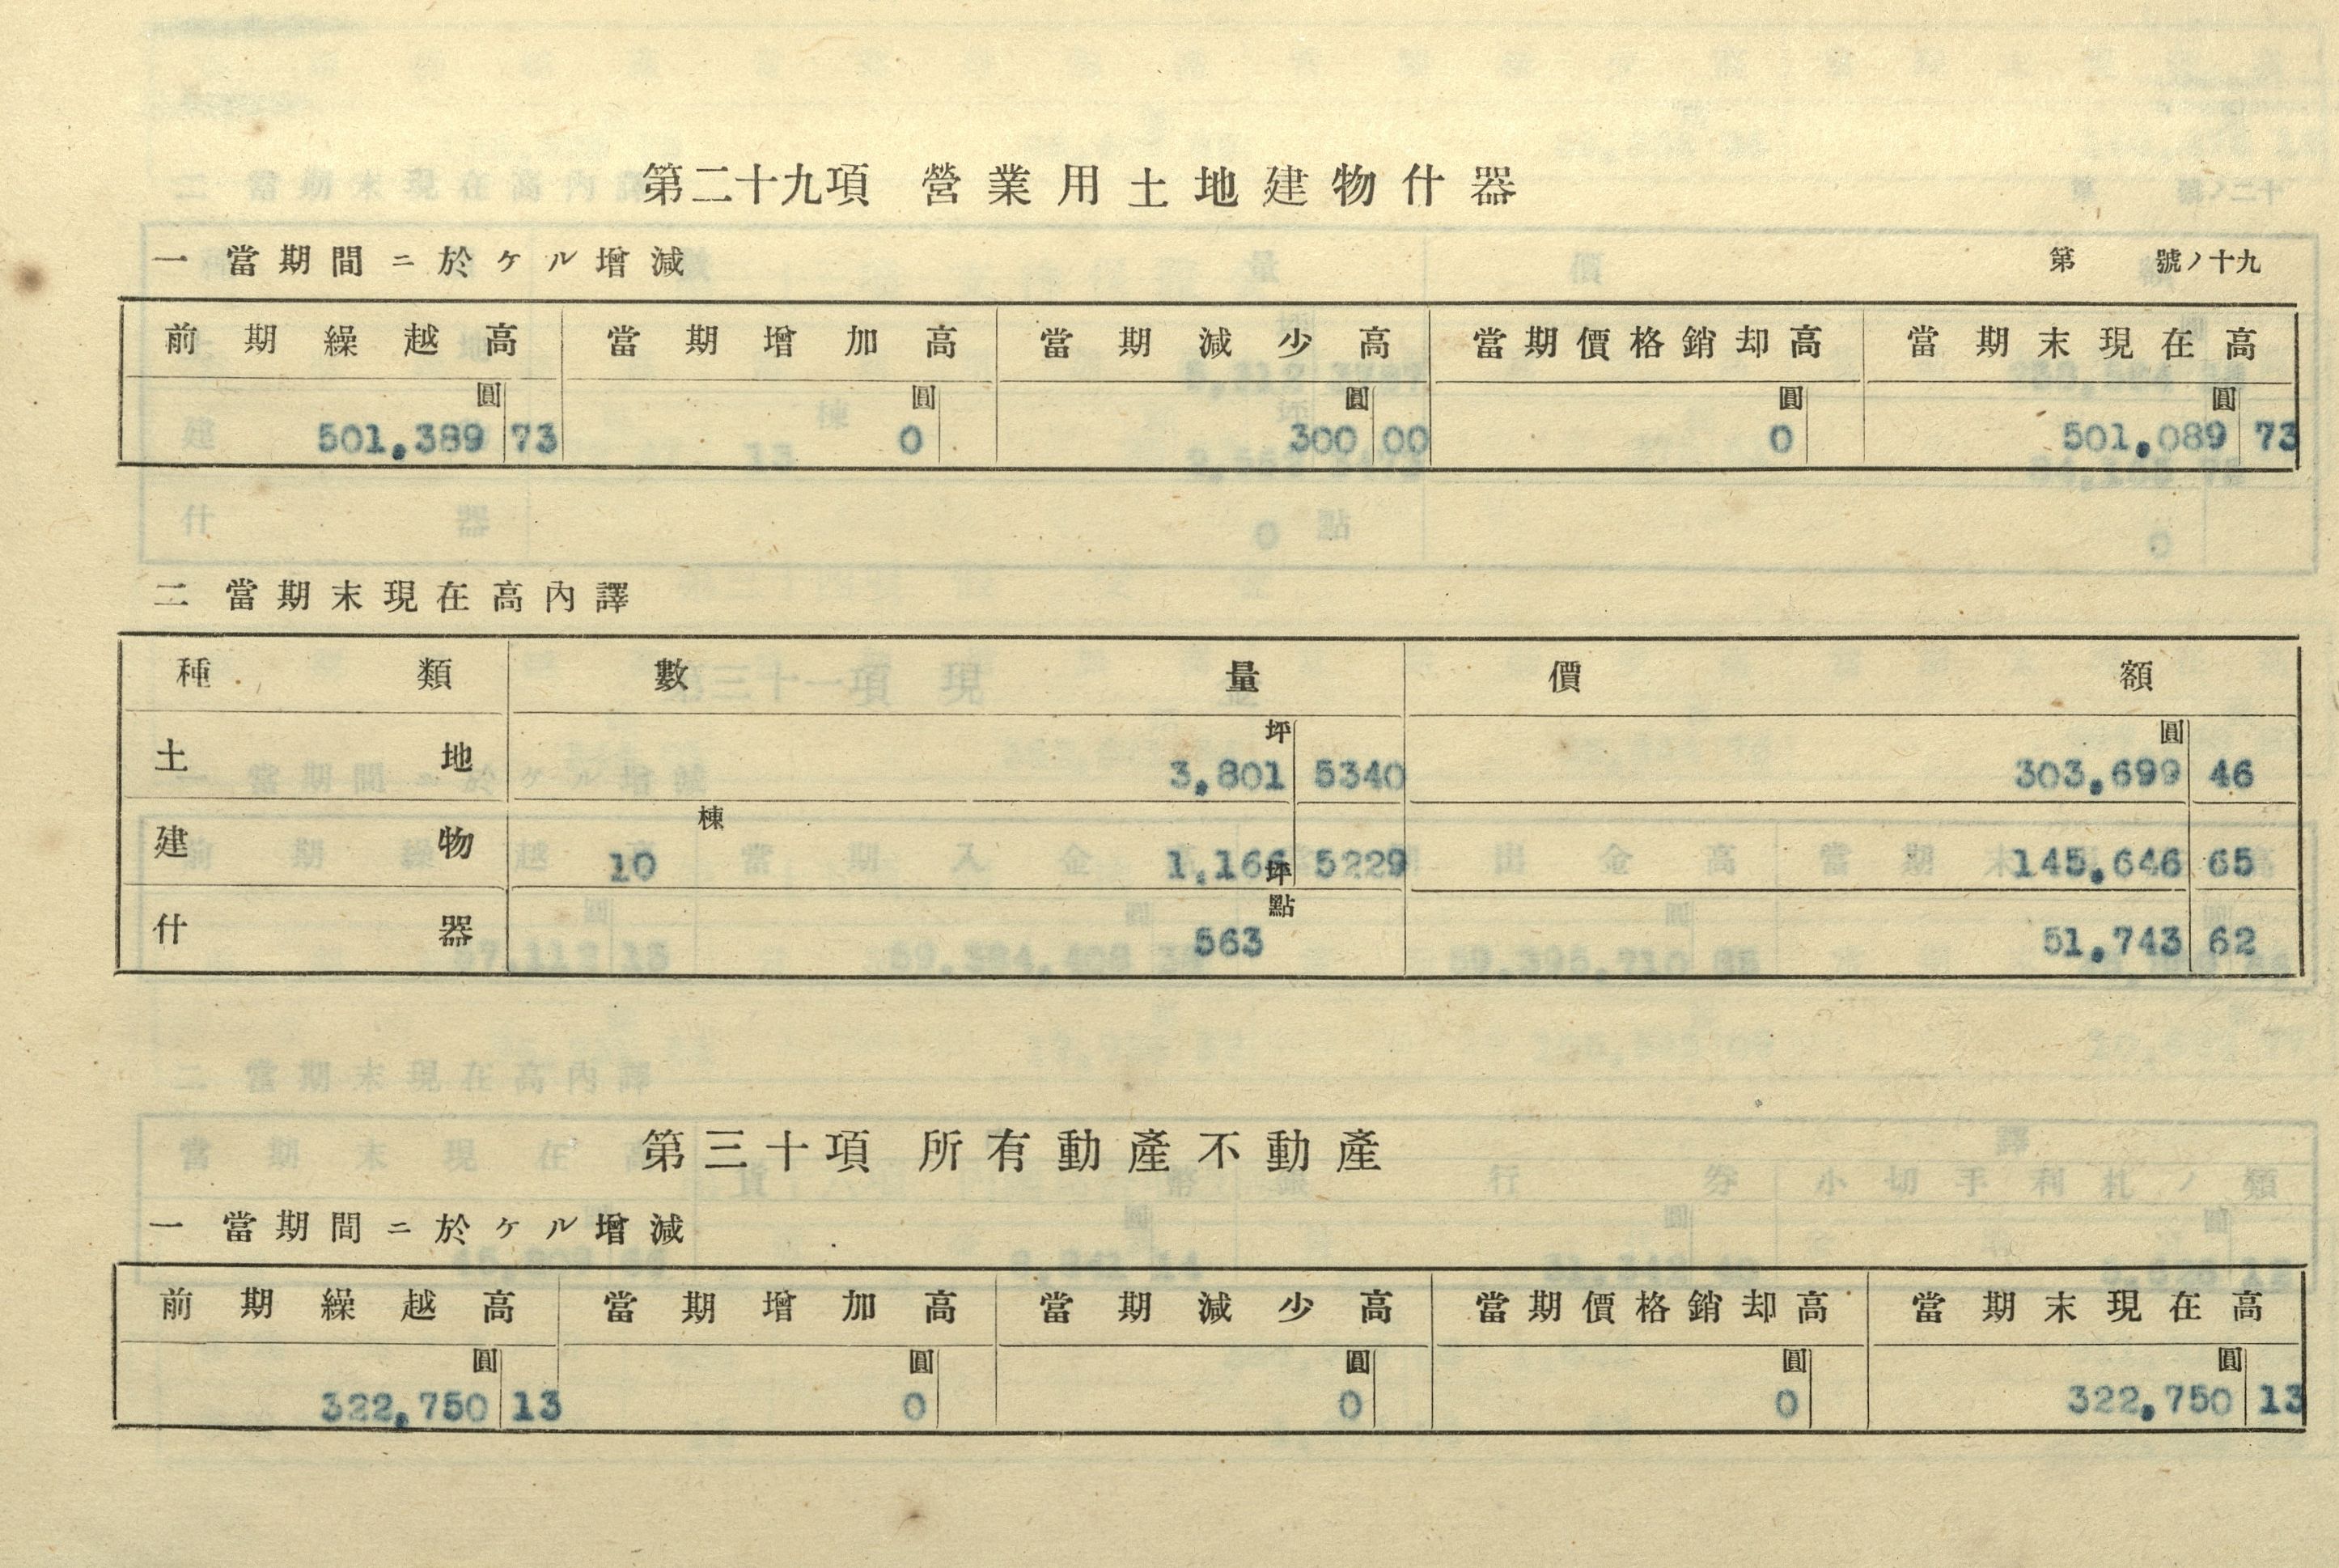 第二十九項 營業用土地建物什器
一 當期間ニ於ケル增減 第 號ノ十九
前期繰越高 當期增加高 當期減少高 當期價格銷却高 當期末現在高
圓 圓 圓 圓 圓
501,389 73 0 300 00 0 501,089 73
二 當期末現在高內譯
種類 數量 價額
坪 圓
土地 3,801 5340 303,699 46
棟
建物 10 1,166 坪 5229 145,646 65
點
什器 563 51,743 62
第三十項 所有動產不動產
一 當期間ニ於ケル增減
前期繰越高 當期增加高 當期減少高 當期價格銷却高 當期末現在高
圓 圓 圓 圓 圓
322,750 13 0 0 0 322,750 13